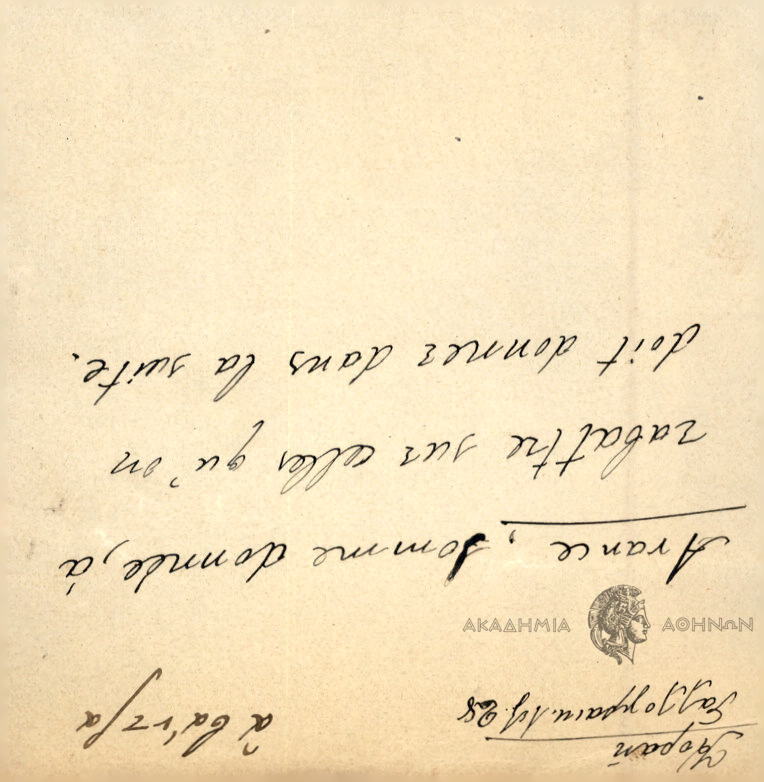 Κοραῆ
Γαλλογραικ. λεξ. 28
ἀβάντζα
Avance, somme donnée, à
rabattre sur celles qu'on
doit donner dans la suite.
ΑΚΑΔΗΜΙΑ ΑΘΗΝΩΝ